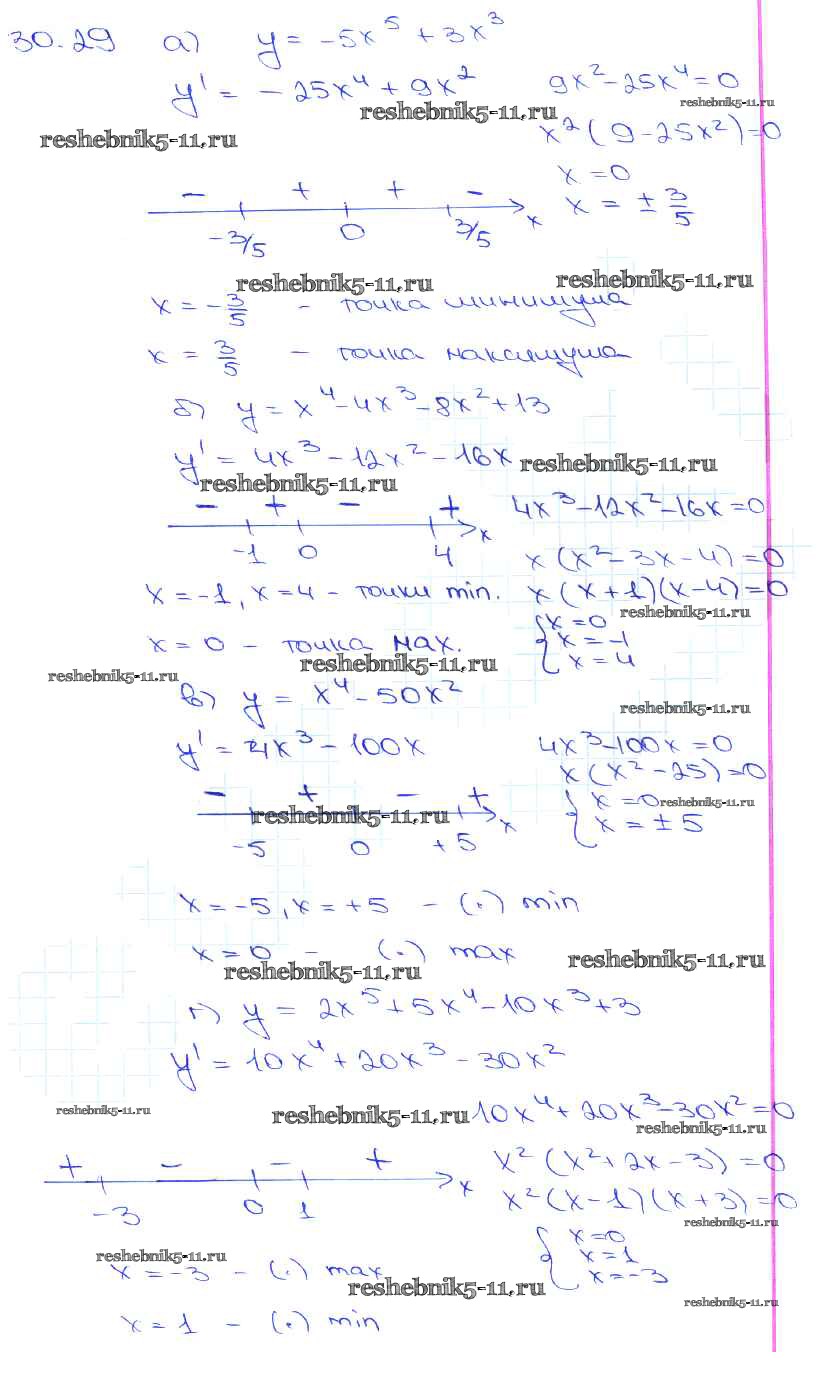 30.29 а) y = -5x⁵ + 3x³
y' = -25x⁴ + 9x² 9x² - 25x⁴ = 0
reshebnik5-11.ru reshebnik5-11.ru
reshebnik5-11.ru x²(9 - 25x²) = 0
x = 0
- + + - x x = ± 3/5
-3/5 0 3/5
reshebnik5-11.ru reshebnik5-11.ru
x = -3/5 - точка минимума
x = 3/5 - точка максимума
б) y = x⁴ - 4x³ - 8x² + 13
y' = 4x³ - 12x² - 16x reshebnik5-11.ru
reshebnik5-11.ru
- + - + x 4x³ - 12x² - 16x = 0
-1 0 4 x(x² - 3x - 4) = 0
x = -1, x = 4 - точки min. x(x + 1)(x - 4) = 0
reshebnik5-11.ru
x = 0 - точка мах. { x = 0
x = -1
reshebnik5-11.ru x = 4
reshebnik5-11.ru
в) y = x⁴ - 50x² reshebnik5-11.ru
y' = 4x³ - 100x 4x³ - 100x = 0
x(x² - 25) = 0
- + - + { x = 0 reshebnik5-11.ru
reshebnik5-11.ru x x = ± 5
-5 0 +5
x = -5, x = +5 - (.) min
x = 0 - (.) max reshebnik5-11.ru
reshebnik5-11.ru
г) y = 2x⁵ + 5x⁴ - 10x³ + 3
y' = 10x⁴ + 20x³ - 30x²
reshebnik5-11.ru reshebnik5-11.ru 10x⁴ + 20x³ - 30x² = 0
reshebnik5-11.ru
+ - - + x x²(x² + 2x - 3) = 0
-3 0 1 x²(x - 1)(x + 3) = 0
reshebnik5-11.ru
reshebnik5-11.ru { x = 0
x = 1
x = -3 - (.) max x = -3
reshebnik5-11.ru reshebnik5-11.ru
x = 1 - (.) min